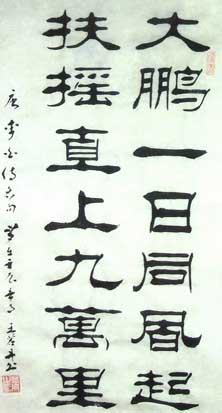 大鹏一日同風起
扶摇直上九萬里
唐李白诗句